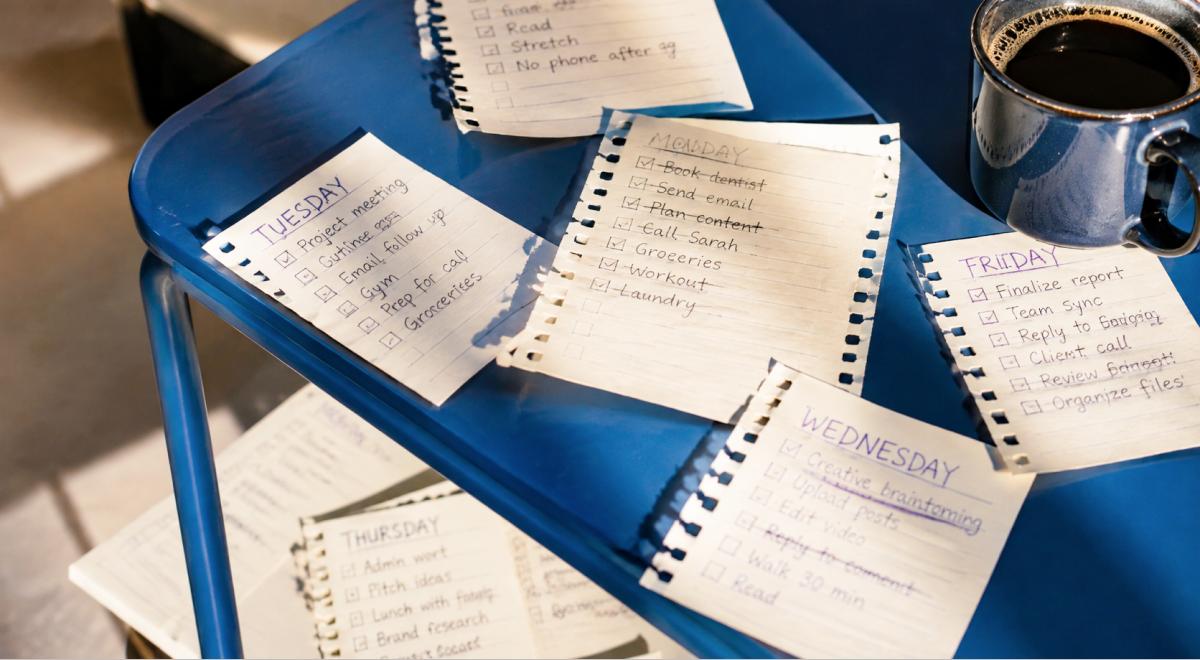 Read
Stretch
No phone after
MONDAY
Book dentist
Send email
Plan content
Call Sarah
Groceries
Workout
Laundry
TUESDAY
Project meeting
Email, follow up
Gym
Prep for call
Groscericies
FRIIDAY
Finalize report
Team sync
Reply to
Client call
Review
Organize files
WEDNESDAY
Creative braintoming
Upload posts
Edit video
Reply to comenit
Walk 30 min
Read
THURSDAY
Admin wort
Pitch ideas
Lunch with
Brand research